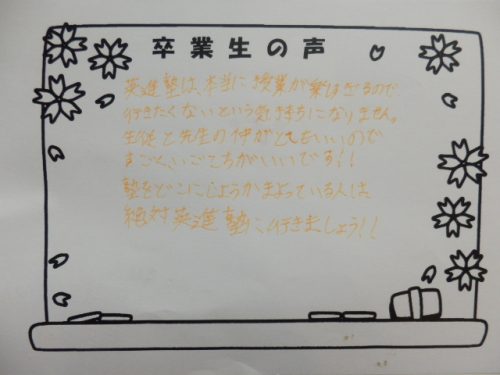 卒業生の声
英進塾は、本当に授業が楽しすぎるので
行きたくないという気持ちになりません。
生徒と先生の仲がとてもいいので
すごくいごこちがいいです!!
塾をどこにしようかまよっている人は
絶対英進塾に行きましょう!!